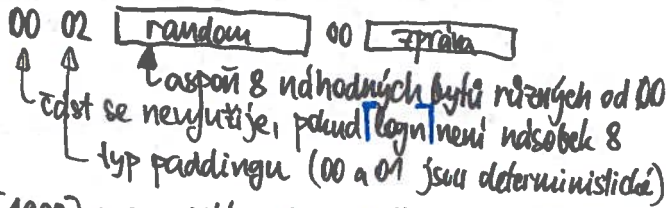 00 02 random 00 zpráva
aspoň 8 náhodných bytů různých od 00
část se nevyužije, pokud ⌈log n⌉ není násobek 8
typ paddingu (00 a 01 jsou deterministické)